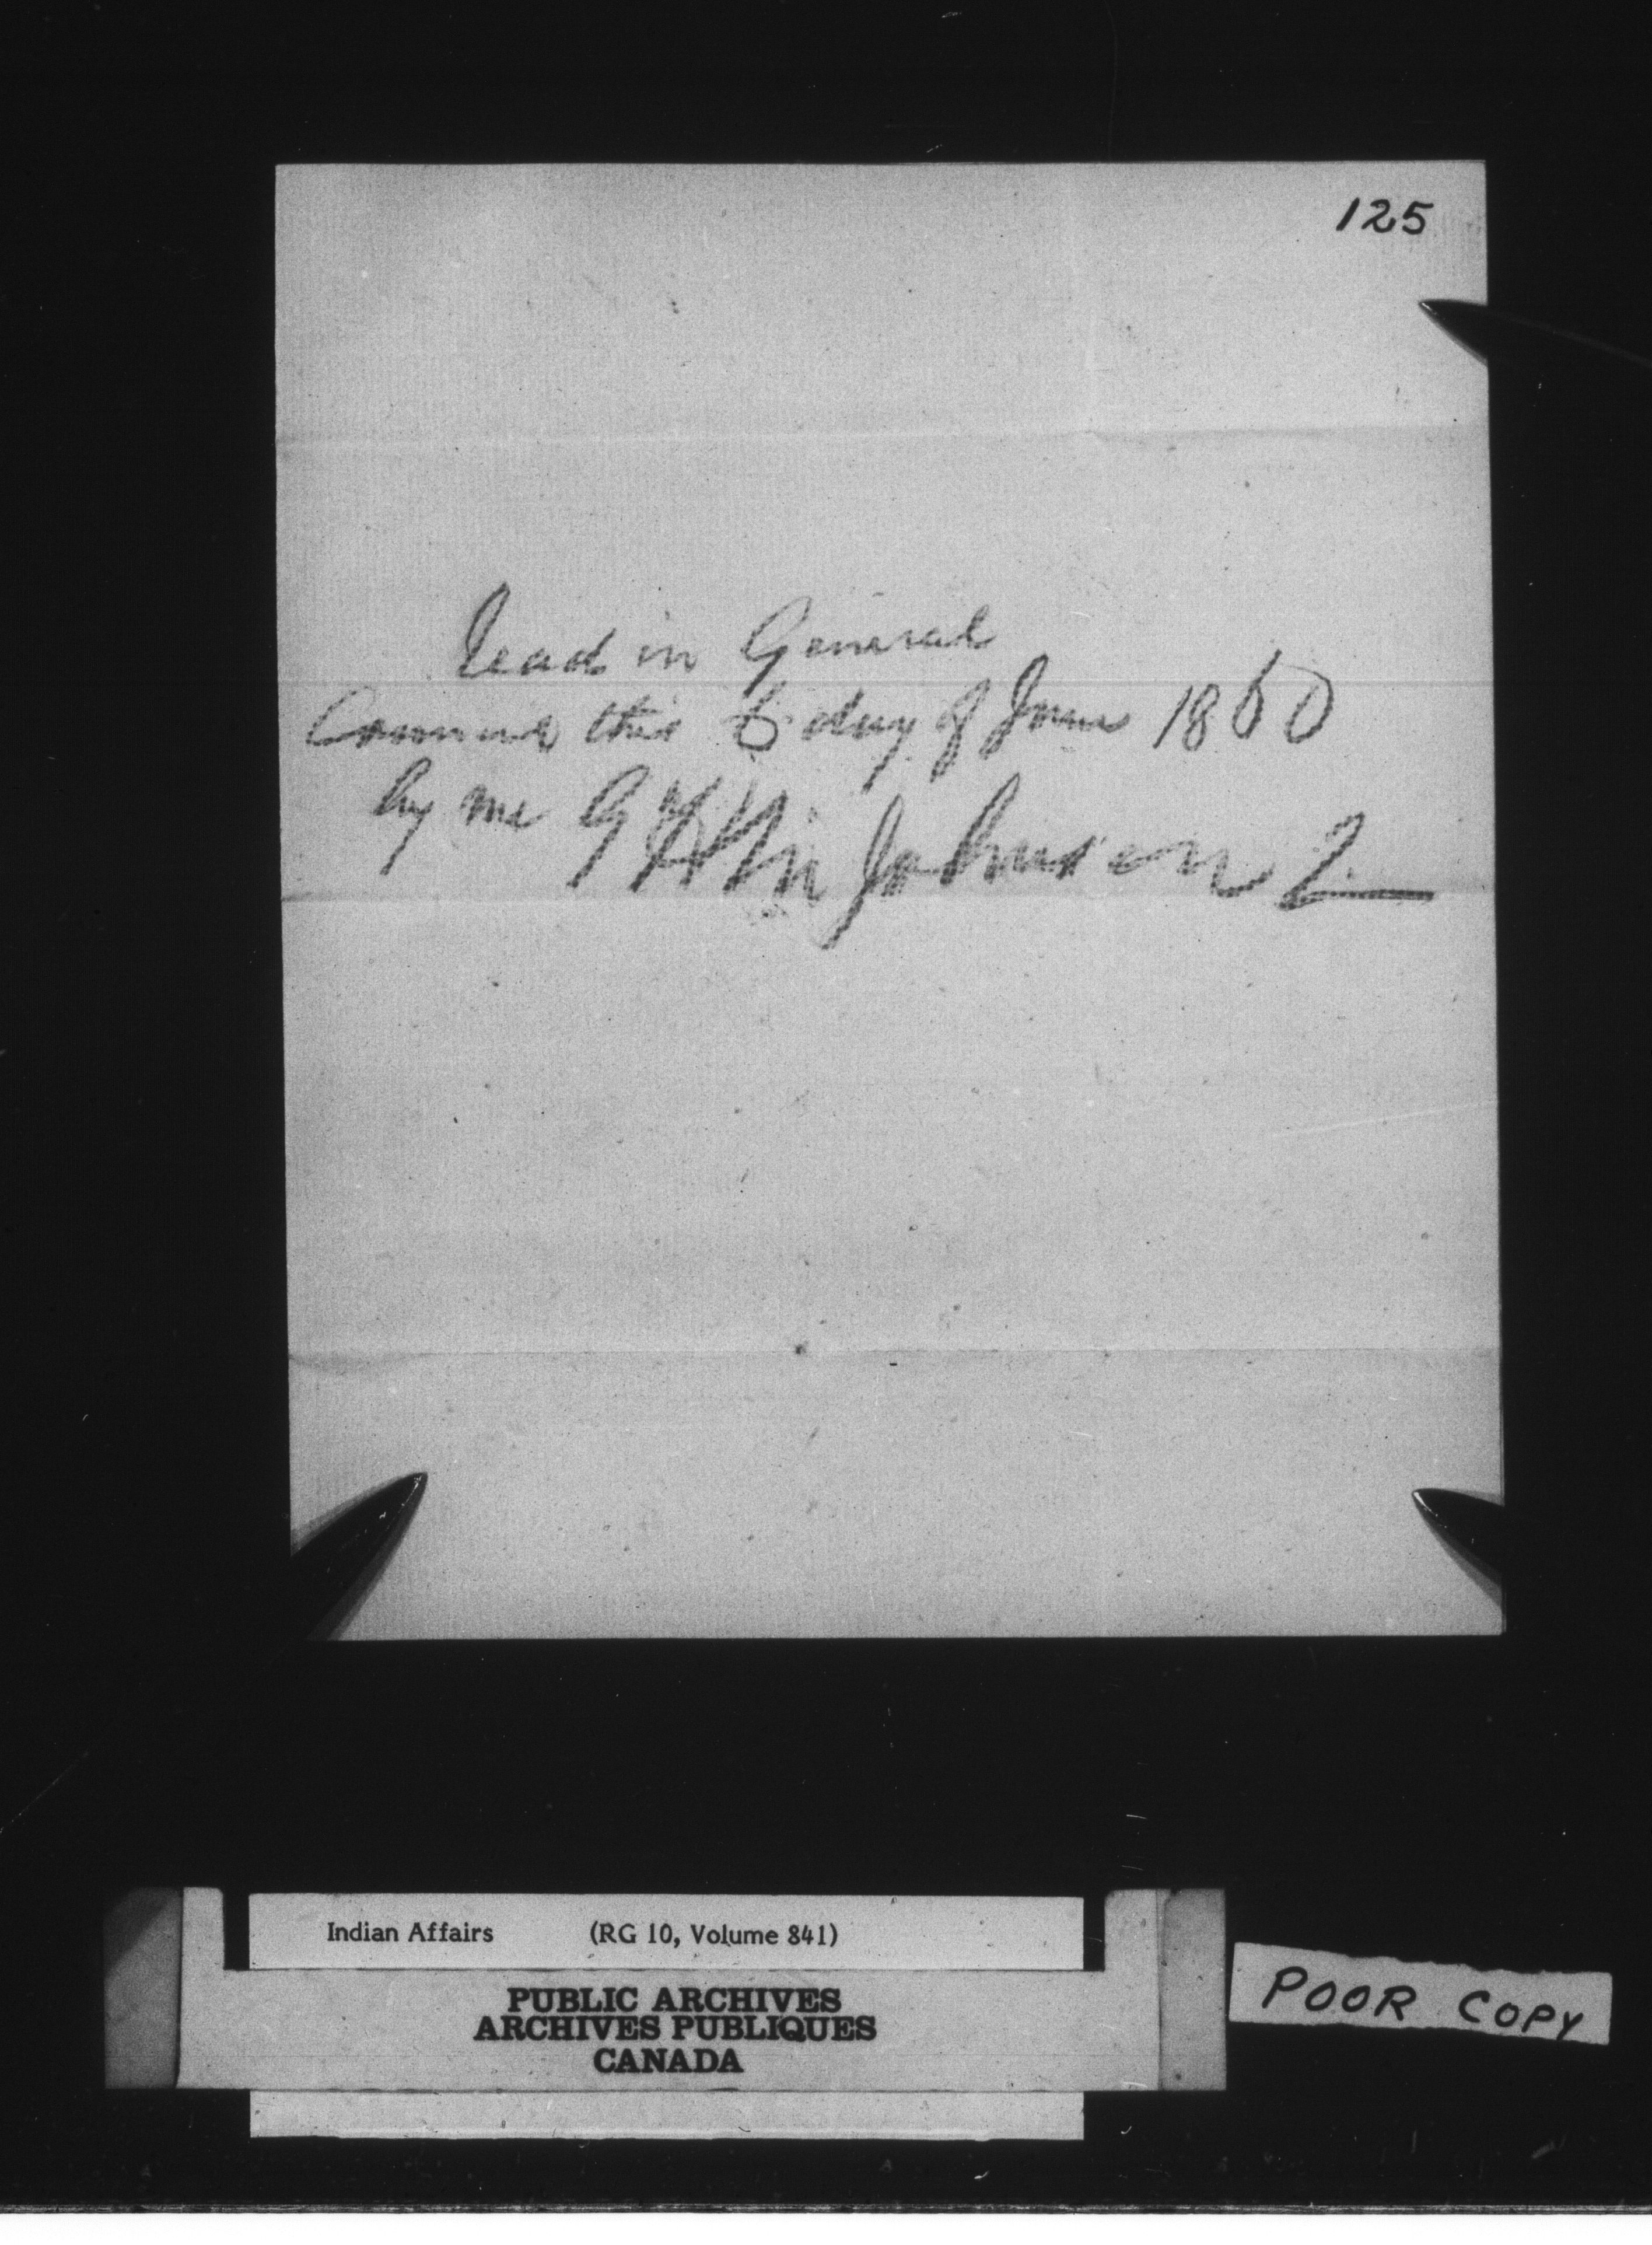 125
Read in General
Council this 6 day of June 1860
by me G H M Johnson
Indian Affairs (RG 10, Volume 841)
PUBLIC ARCHIVES
ARCHIVES PUBLIQUES
CANADA
POOR COPY